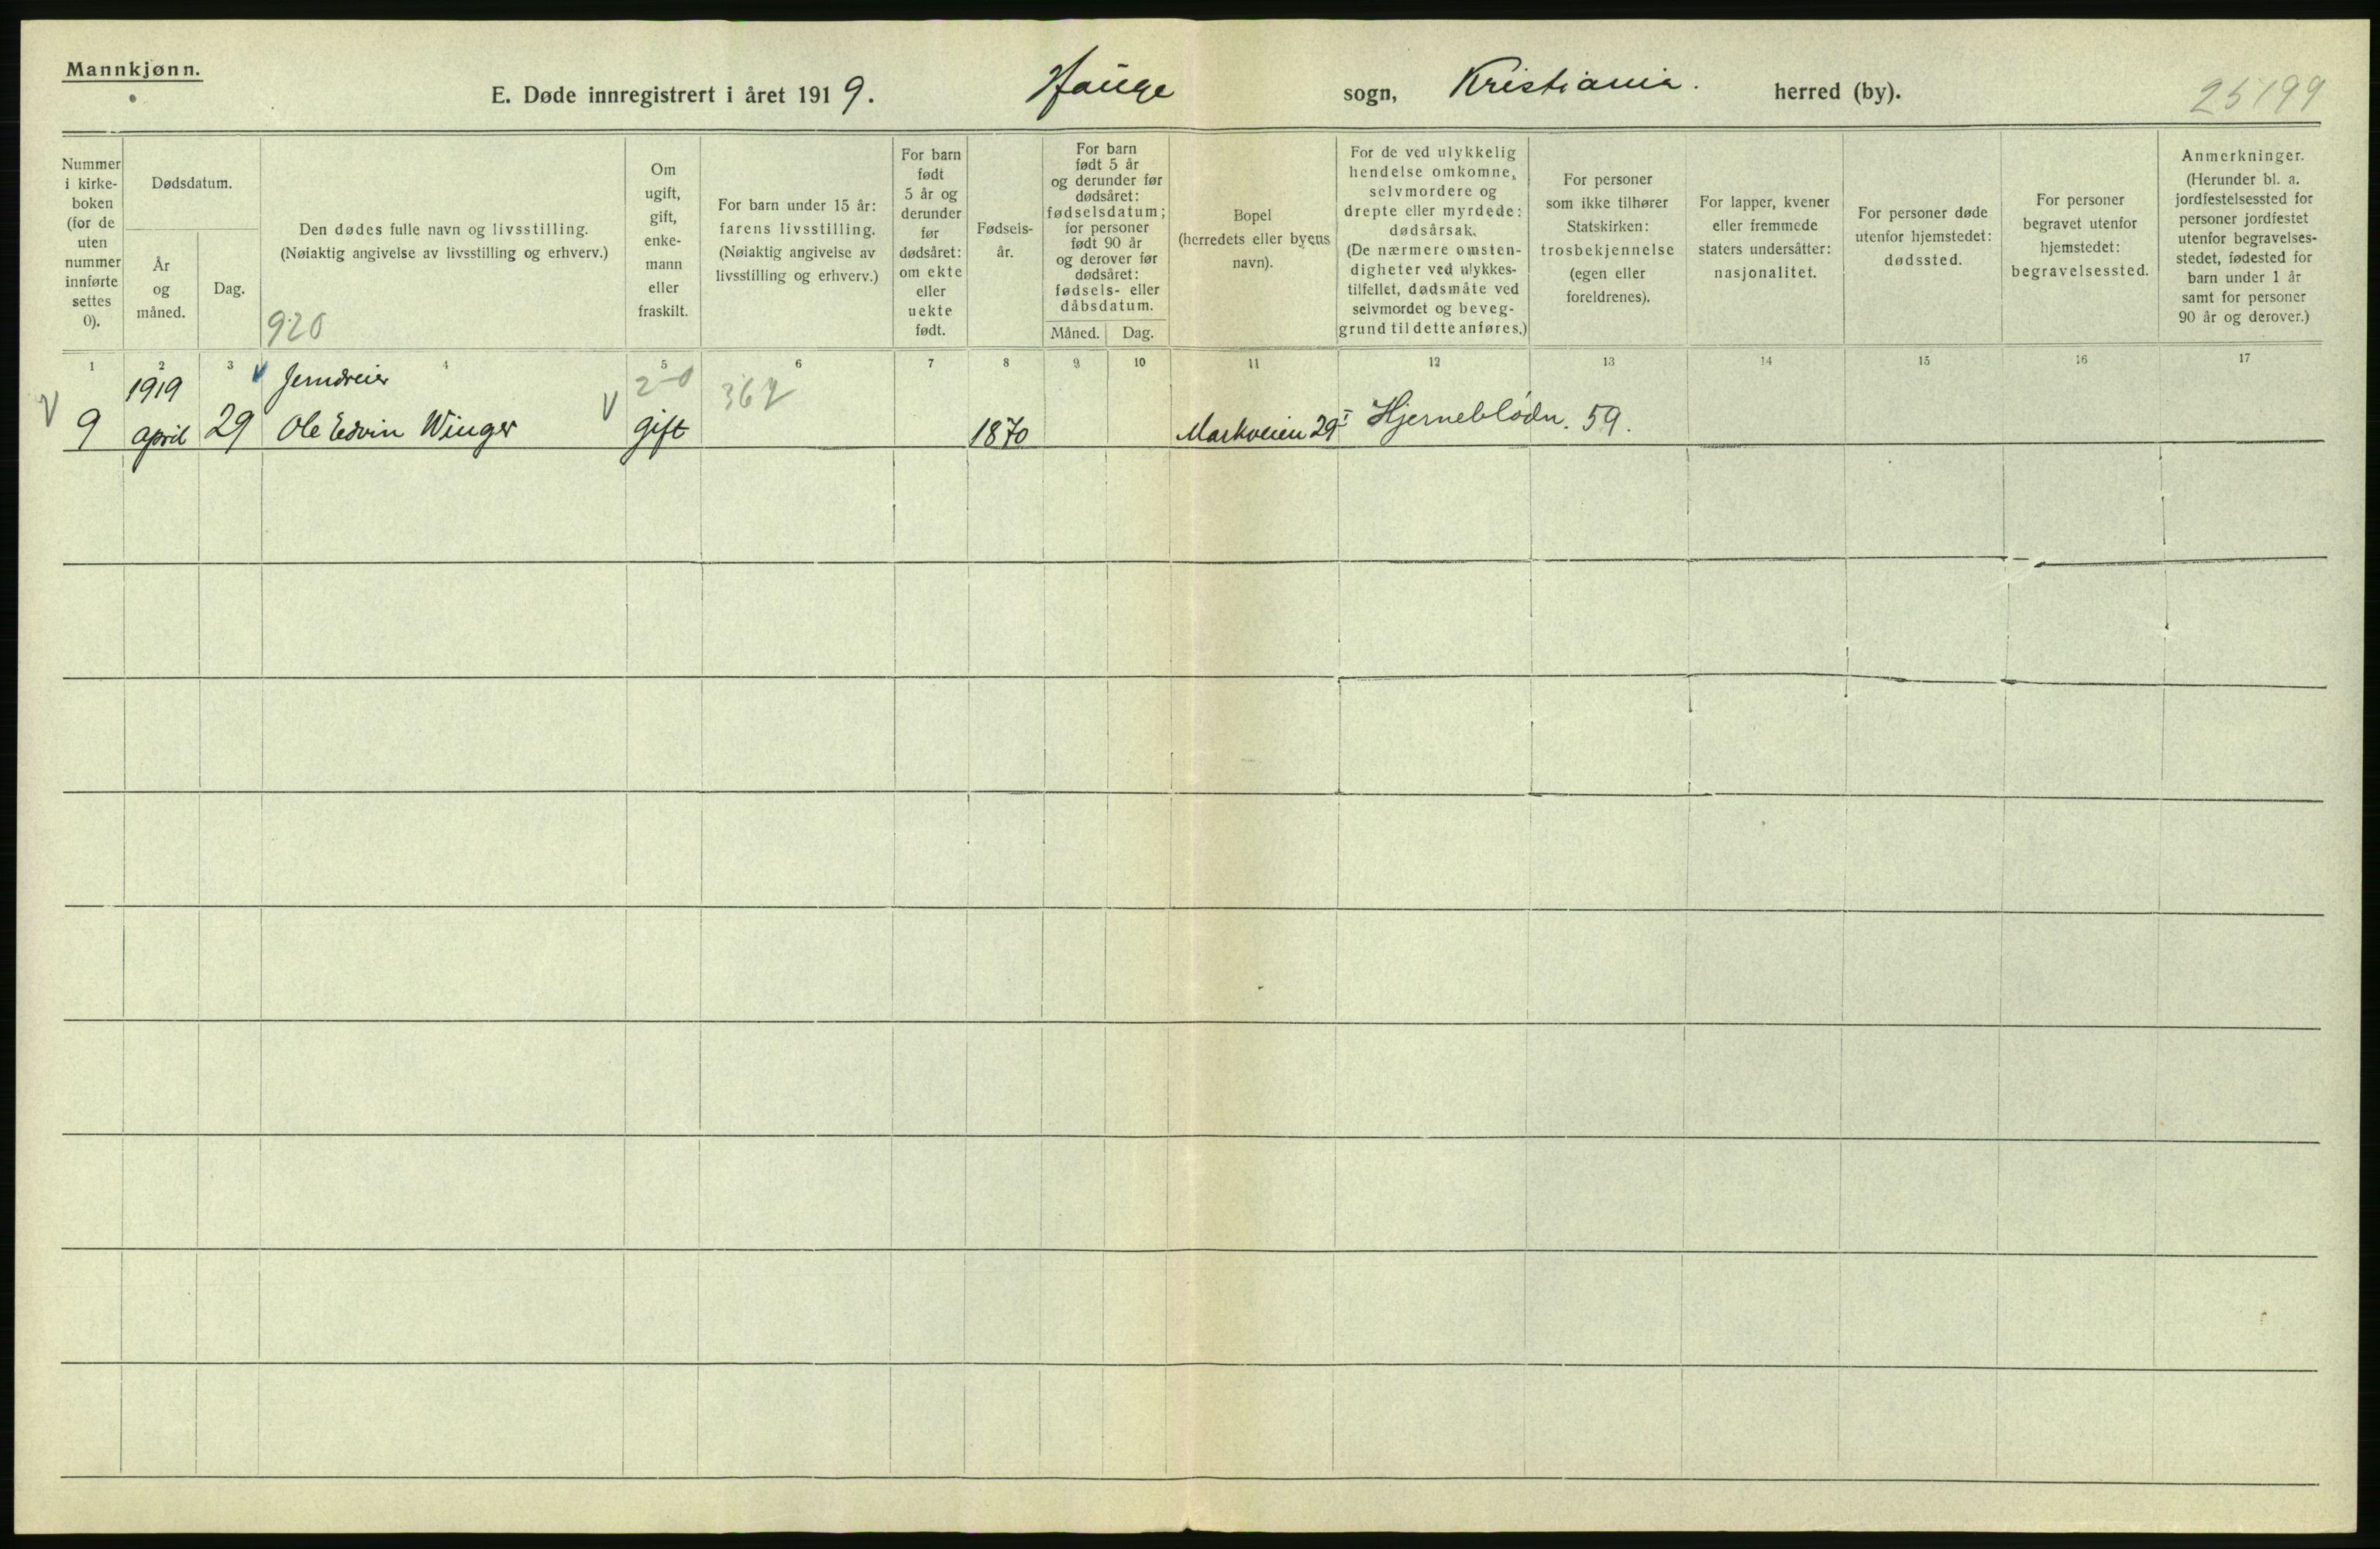 Mannkjønn.
E. Døde innregistrert i året 1919. Hauge sogn, Kristiania. herred (by).
25199
Nummer
i kirke-
boken
(for de
uten
nummer
innførte
settes
0).
Dødsdatum.
År
og
måned.
Dag.
Den dødes fulle navn og livsstilling.
(Nøiaktig angivelse av livsstilling og erhverv.)
920
Om
ugift,
gift,
enke-
mann
eller
fraskilt.
For barn under 15 år:
farens livsstilling.
(Nøiaktig angivelse av
livsstilling og erhverv.)
For barn
født
5 år og
derunder
før
dødsåret:
om ekte
eller
uekte
født.
Fødsels-
år.
For barn
født 5 år
og derunder før
dødsåret:
fødselsdatum;
for personer
født 90 år
og derover før
dødsåret:
fødsels- eller
dåbsdatum.
Måned. Dag.
Bopel
(herredets eller byens
navn).
For de ved ulykkelig
hendelse omkomne,
selvmordere og
drepte eller myrdede:
dødsårsak.
(De nærmere omsten-
digheter ved ulykkes-
tilfellet, dødsmåte ved
selvmordet og beveg-
grund til dette anføres.)
For personer
som ikke tilhører
Statskirken:
trosbekjennelse
(egen eller
foreldrenes).
For lapper, kvener
eller fremmede
staters undersåtter:
nasjonalitet.
For personer døde
utenfor hjemstedet:
dødssted.
For personer
begravet utenfor
hjemstedet:
begravelsessted.
Anmerkninger.
(Herunder bl. a.
jordfestelsessted for
personer jordfestet
utenfor begravelses-
stedet, fødested for
barn under 1 år
samt for personer
90 år og derover.)
1 2 3 4 5 6 7 8 9 10 11 12 13 14 15 16 17
1919 Jerndreier 2-0 367
9 april 29 Ole Edvin Winger gift 1870 Markveien 29 I Hjerneblödn. 59.